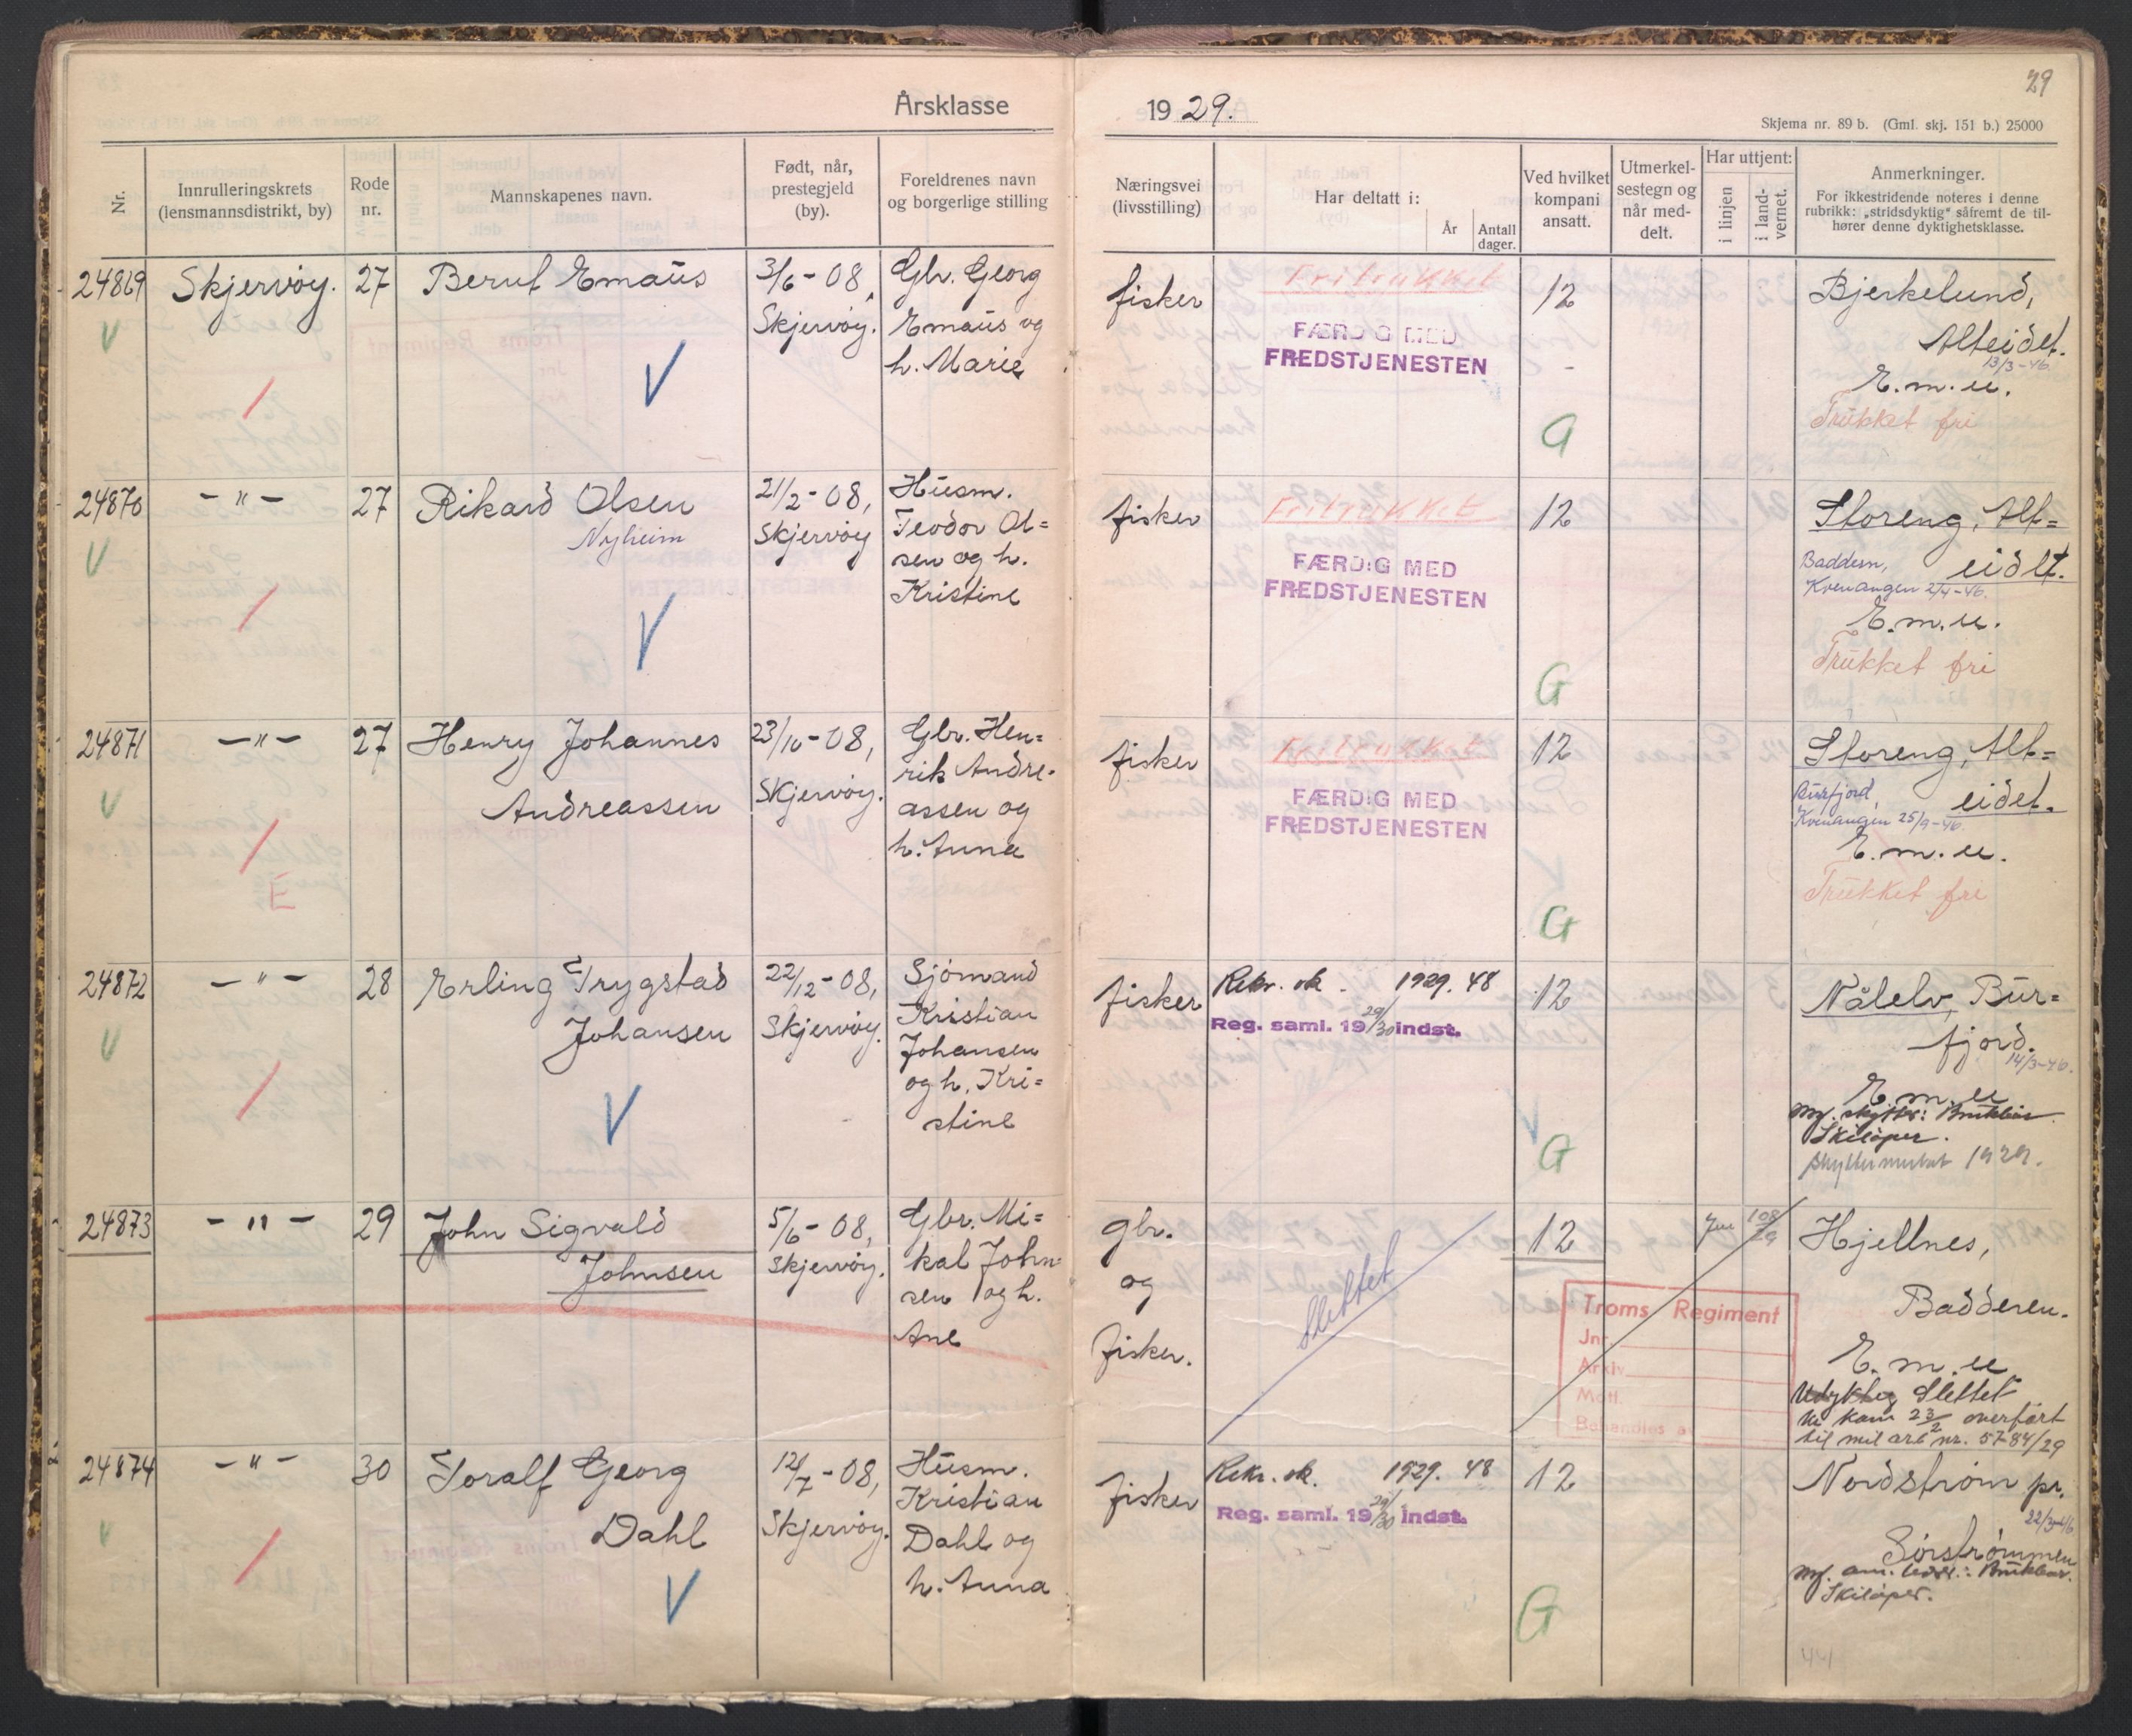 29
Årsklasse 1929.
Skjema nr. 89 b. (Gml. skj. 151 b.) 25000
Nr.
Innrulleringskrets
(lensmannsdistrikt, by)
Rode
nr.
Mannskapenes navn.
Født, når,
prestegjeld
(by).
Foreldrenes navn
og borgerlige stilling
Næringsvei
(livsstilling)
Har deltatt i:
År
Antall
dager.
Ved hvilket
kompani
ansatt.
Utmerkel-
sestegn og
når med-
delt.
Har uttjent:
i linjen
i land-
vernet.
Anmerkninger.
For ikkestridende noteres i denne
rubrikk: „stridsdyktig“ såfremt de til-
hører denne dyktighetsklasse.
24869
Skjervøy.
27
Bernt Emaus
3/6-08,
Skjervøy.
Gbr. Georg
Emaus og
h. Marie
fisker
Fritrukket
FÆRDIG MED
FREDSTJENESTEN
12
G
Bjerkelund,
Alteidet.
13/3-46
E.m.u.
Trukket fri
24870
-"-
27
Rikard Olsen
Nyheim
21/2-08,
Skjervøy
Husm.
Teodor Ol=
sen og h.
Kristine
fisker
Fritrukket
FÆRDIG MED
FREDSTJENESTEN
12
G
Storeng, Alt=
eidet.
Baddern,
Kvenangen 2/4-46.
E.m.u.
Trukket fri
24871
-"-
27
Henry Johannes
Andreassen
23/10-08,
Skjervøy.
Gbr. Hen=
rik Andre-
assen og
h. Anna
E
fisker
Fritrukket
FÆRDIG MED
FREDSTJENESTEN
12
G
Storeng, Alt=
eidet.
Burfjord,
Kvenangen 25/9-46
E.m.u.
Trukket fri
24872
-"-
28
Erling Trygstad
Johansen
22/12-08,
Skjervøy.
Sjømand
Kristian
Johansen
og h. Kri=
stine
fisker
Rekr. sk. 1929. 48
Reg. saml. 19 29/30 indst.
12
G
Nålelv, Bur=
fjord.
14/3-46.
E.m.u
Mg. skytter: Brukbar.
Skiløper.
Skyttermerket 1929.
24873
-"-
29
John Sigvald
Johnsen
5/6-08,
Skjervøy.
Gbr. Mi=
kal John-
sen og h.
Ane
gbr.
og
fisker.
Slettet
12
108/29
Troms Regiment
Jnr.
Arkiv
Motl.
Behandles av
Hjellnes,
Badderen.
E.m.u
Udyktig Slettet
overført
til mil arb nr. 5784/29
24874
-"-
30
Toralf Georg
Dahl
12/7-08,
Skjervøy.
Husm.
Kristian
Dahl og
h. Anna
fisker
Rekr. sk. 1929. 48
Reg. saml. 19 29/30 indst.
12
G
Nordstrøm pr.
22/3-46
Sørstrømmen
Mg. am. Brukbar.
Skiløper.
441